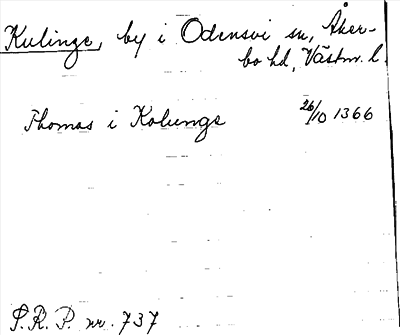 Kulinge, by i Odensvi sn, Åker-
bo hd, Västm. l.
Thomas i Kolunge 26/10 1366
S.R.P. nr. 737